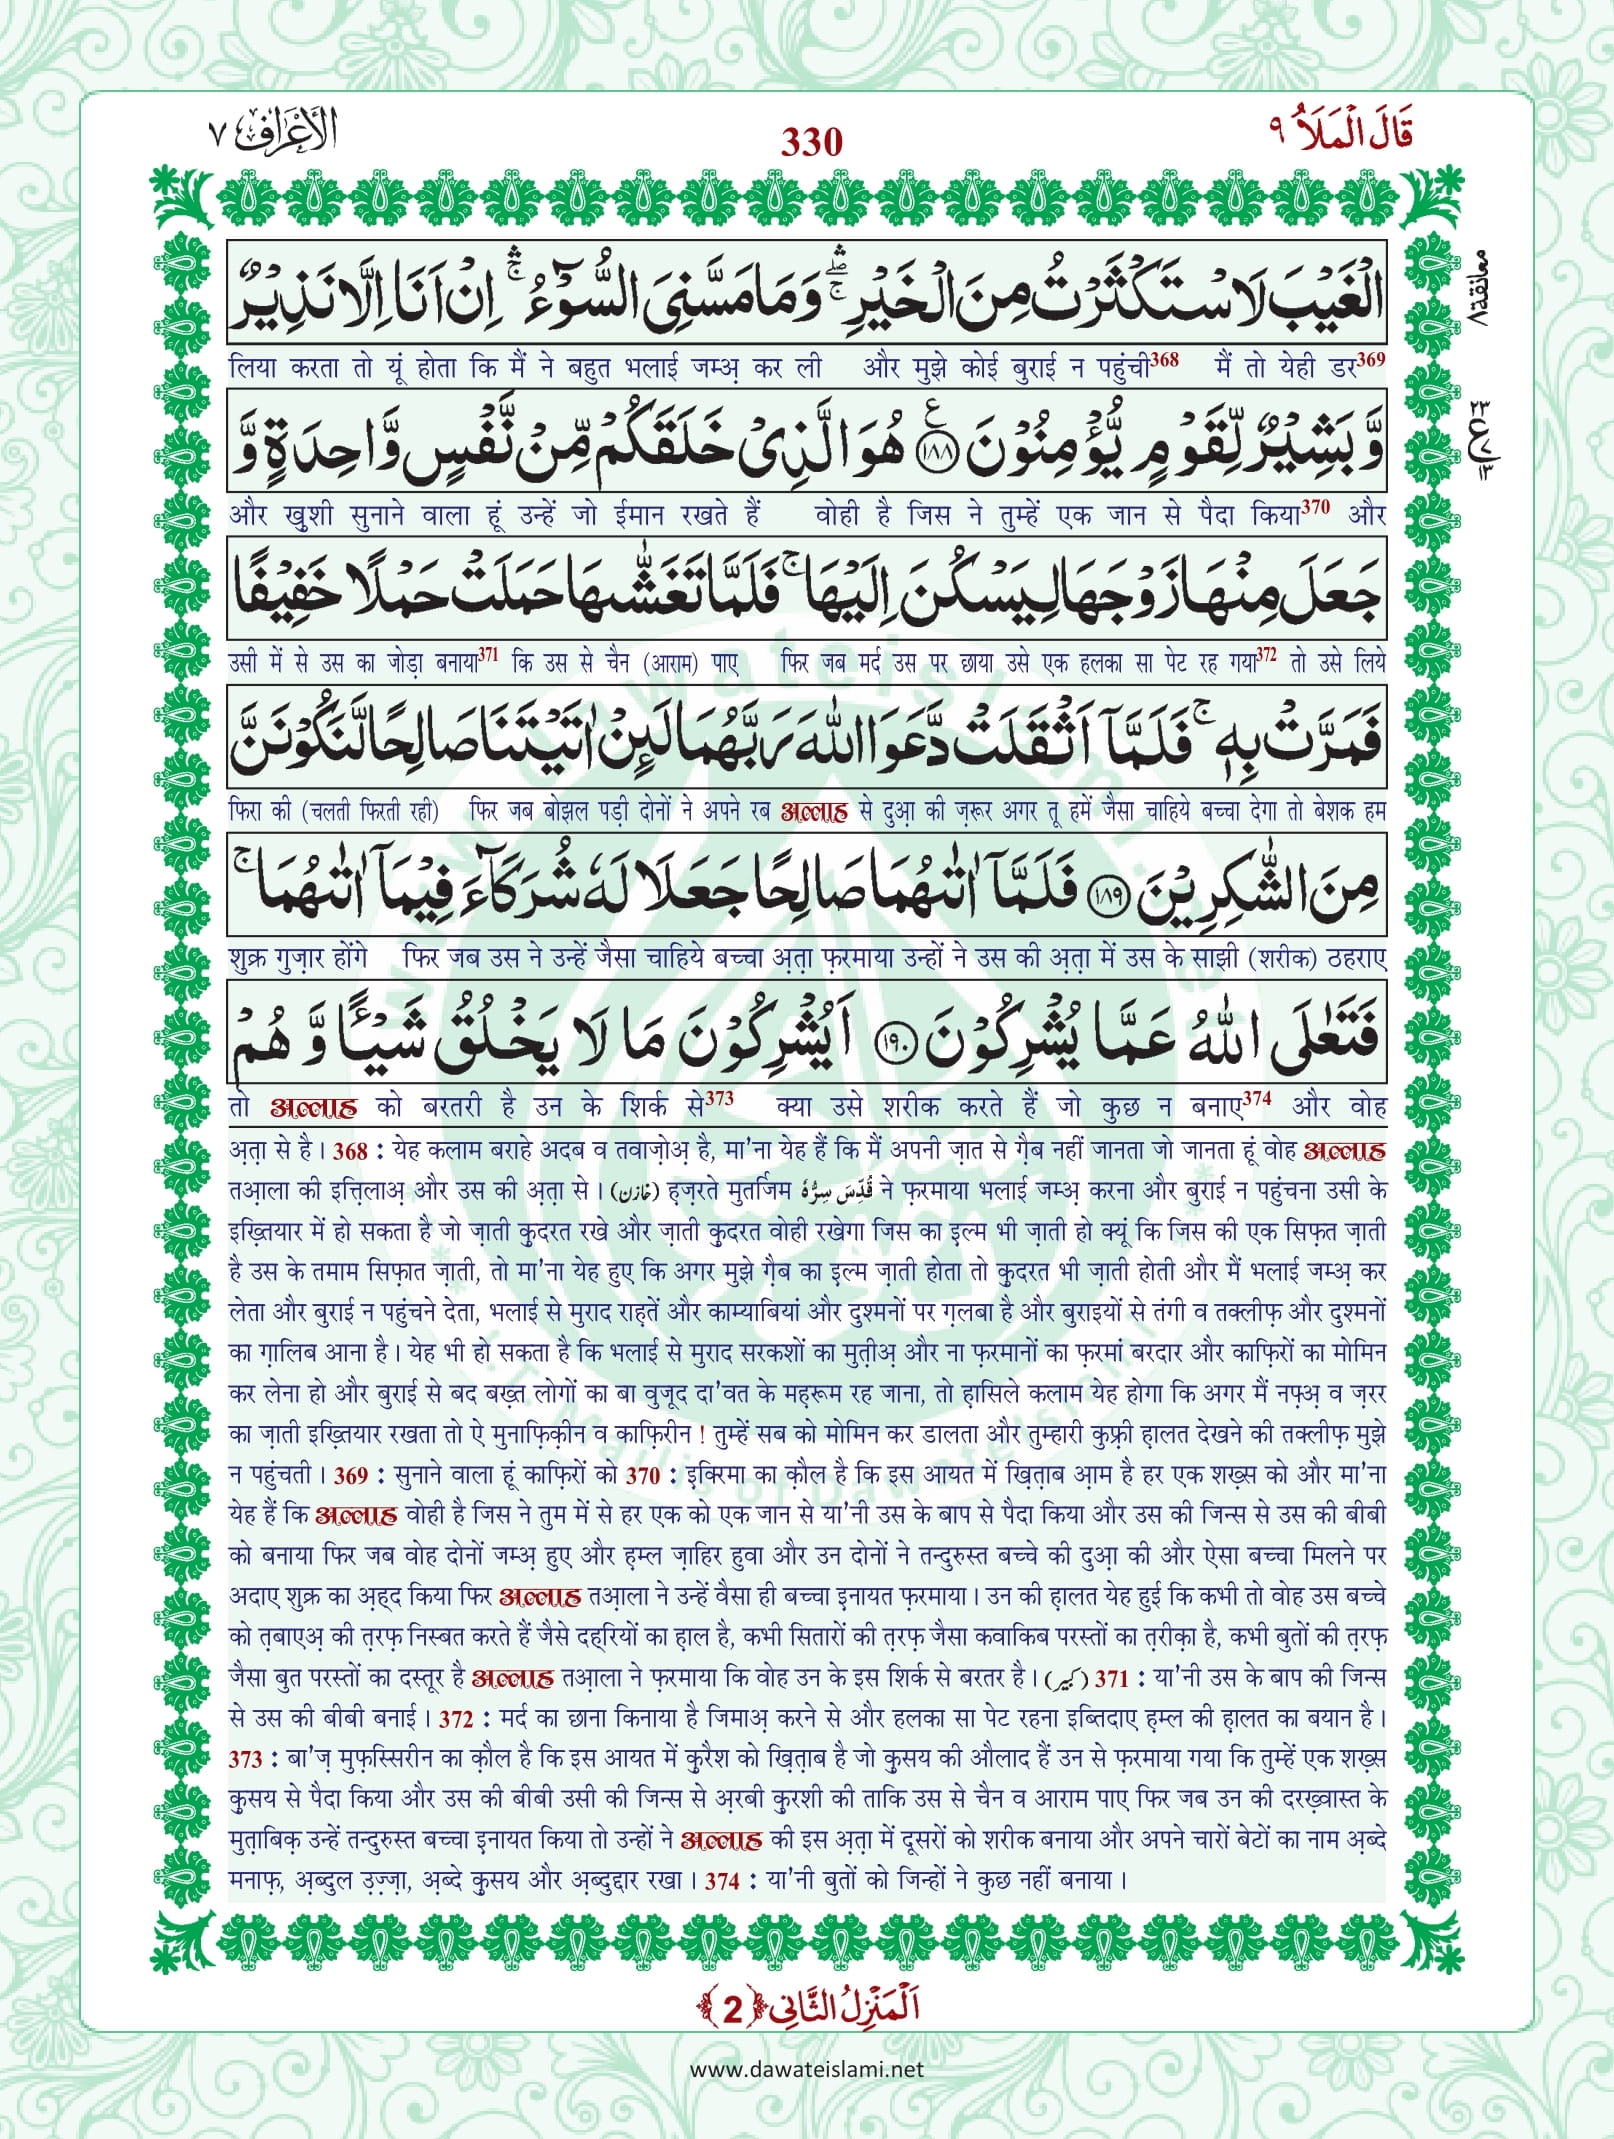 الأعراف ٧
330
قَالَ الْمَلَأُ ٩
الْغَيْبَ لَاسْتَكْثَرْتُ مِنَ الْخَيْرِ ۛۚ وَمَا مَسَّنِیَ السُّوْٓءُ ۛۚ اِنْ اَنَا اِلَّا نَذِیْرٌ
معانقة ٨
लिया करता तो यूं होता कि मैं ने बहुत भलाई जम्अ़ कर ली और मुझे कोई बुराई न पहुंची368 मैं तो येही डर369
وَّ بَشِیْرٌ لِّقَوْمٍ یُّؤْمِنُوْنَ ﴿۱۸۸﴾ هُوَ الَّذِیْ خَلَقَكُمْ مِّنْ نَّفْسٍ وَّاحِدَةٍ وَّ
और खुशी सुनाने वाला हूं उन्हें जो ईमान रखते हैं वोही है जिस ने तुम्हें एक जान से पैदा किया370 और
جَعَلَ مِنْهَا زَوْجَهَا لِیَسْكُنَ اِلَیْهَا ۚ فَلَمَّا تَغَشّٰىهَا حَمَلَتْ حَمْلًا خَفِیْفًا
उसी में से उस का जोड़ा बनाया371 कि उस से चैन (आराम) पाए फिर जब मर्द उस पर छाया उसे एक हलका सा पेट रह गया372 तो उसे लिये
فَمَرَّتْ بِهٖ ۚ فَلَمَّاۤ اَثْقَلَتْ دَّعَوَا اللّٰهَ رَبَّهُمَا لَىِٕنْ اٰتَیْتَنَا صَالِحًا لَّنَكُوْنَنَّ
फिरा की (चलती फिरती रही) फिर जब बोझल पड़ी दोनों ने अपने रब अल्लाह से दुआ़ की ज़रूर अगर तू हमें जैसा चाहिये बच्चा देगा तो बेशक हम
مِنَ الشّٰكِرِیْنَ ﴿۱۸۹﴾ فَلَمَّاۤ اٰتٰىهُمَا صَالِحًا جَعَلَا لَهٗ شُرَكَآءَ فِیْمَاۤ اٰتٰىهُمَا ۚ
शुक्र गुज़ार होंगे फिर जब उस ने उन्हें जैसा चाहिये बच्चा अ़त़ा फ़रमाया उन्हों ने उस की अ़त़ा में उस के साझी (शरीक) ठहराए
فَتَعٰلَى اللّٰهُ عَمَّا یُشْرِكُوْنَ ﴿۱۹۰﴾ اَیُشْرِكُوْنَ مَا لَا یَخْلُقُ شَیْــٴًـا وَّ هُمْ
तो अल्लाह को बरतरी है उन के शिर्क से373 क्या उसे शरीक करते हैं जो कुछ न बनाए374 और वोह
अ़त़ा से है। 368 : येह कलाम बराहे अदब व तवाज़ोअ़ है, मा'ना येह हैं कि मैं अपनी ज़ात से ग़ैब नहीं जानता जो जानता हूं वोह अल्लाह
तआ़ला की इत्तिलाअ़ और उस की अ़त़ा से। (خازن) ह़ज़रते मुतर्जिम قُدِّسَ سِرُّہٗ ने फ़रमाया भलाई जम्अ़ करना और बुराई न पहुंचना उसी के
इख़्तियार में हो सकता है जो ज़ाती क़ुदरत रखे और ज़ाती क़ुदरत वोही रखेगा जिस का इल्म भी ज़ाती हो क्यूं कि जिस की एक सिफ़त ज़ाती
है उस के तमाम सिफ़ात ज़ाती, तो मा'ना येह हुए कि अगर मुझे ग़ैब का इल्म ज़ाती होता तो क़ुदरत भी ज़ाती होती और मैं भलाई जम्अ़ कर
लेता और बुराई न पहुंचने देता, भलाई से मुराद राह़तें और काम्याबियां और दुश्मनों पर ग़लबा है और बुराइयों से तंगी व तक्लीफ़ और दुश्मनों
का ग़ालिब आना है। येह भी हो सकता है कि भलाई से मुराद सरकशों का मुत़ीअ़ और ना फ़रमानों का फ़रमां बरदार और काफ़िरों का मोमिन
कर लेना हो और बुराई से बद बख़्त लोगों का बा वुजूद दा'वत के मह़रूम रह जाना, तो ह़ासिले कलाम येह होगा कि अगर मैं नफ़्अ़ व ज़रर
का ज़ाती इख़्तियार रखता तो ऐ मुनाफ़िक़ीन व काफ़िरीन ! तुम्हें सब को मोमिन कर डालता और तुम्हारी कुफ़्री ह़ालत देखने की तक्लीफ़ मुझे
न पहुंचती। 369 : सुनाने वाला हूं काफ़िरों को 370 : इक्रिमा का क़ौल है कि इस आयत में ख़ित़ाब आ़म है हर एक शख़्स को और मा'ना
येह हैं कि अल्लाह वोही है जिस ने तुम में से हर एक को एक जान से या'नी उस के बाप से पैदा किया और उस की जिन्स से उस की बीबी
को बनाया फिर जब वोह दोनों जम्अ़ हुए और ह़म्ल ज़ाहिर हुवा और उन दोनों ने तन्दुरुस्त बच्चे की दुआ़ की और ऐसा बच्चा मिलने पर
अदाए शुक्र का अ़हद किया फिर अल्लाह तआ़ला ने उन्हें वैसा ही बच्चा इनायत फ़रमाया। उन की ह़ालत येह हुई कि कभी तो वोह उस बच्चे
को त़बाएअ़ की त़रफ़ निस्बत करते हैं जैसे दहरियों का ह़ाल है, कभी सितारों की त़रफ़ जैसा कवाकिब परस्तों का त़रीक़ा है, कभी बुतों की त़रफ़
जैसा बुत परस्तों का दस्तूर है अल्लाह तआ़ला ने फ़रमाया कि वोह उन के इस शिर्क से बरतर है। (کبیر) 371 : या'नी उस के बाप की जिन्स
से उस की बीबी बनाई। 372 : मर्द का छाना किनाया है जिमाअ़ करने से और हलका सा पेट रहना इब्तिदाए ह़म्ल की ह़ालत का बयान है।
373 : बा'ज़ मुफ़स्सिरीन का क़ौल है कि इस आयत में क़ुरैश को ख़ित़ाब है जो क़ुसय की औलाद हैं उन से फ़रमाया गया कि तुम्हें एक शख़्स
क़ुसय से पैदा किया और उस की बीबी उसी की जिन्स से अ़रबी क़ुरशी की ताकि उस से चैन व आराम पाए फिर जब उन की दरख़्वास्त के
मुत़ाबिक़ उन्हें तन्दुरुस्त बच्चा इनायत किया तो उन्हों ने अल्लाह की इस अ़त़ा में दूसरों को शरीक बनाया और अपने चारों बेटों का नाम अ़ब्दे
मनाफ़, अ़ब्दुल उ़ज़्ज़ा, अ़ब्दे क़ुसय और अ़ब्दुद्दार रखा। 374 : या'नी बुतों को जिन्हों ने कुछ नहीं बनाया।
اَلْمَنْزِلُ الثَّانِی ﴿2﴾
www.dawateislami.net